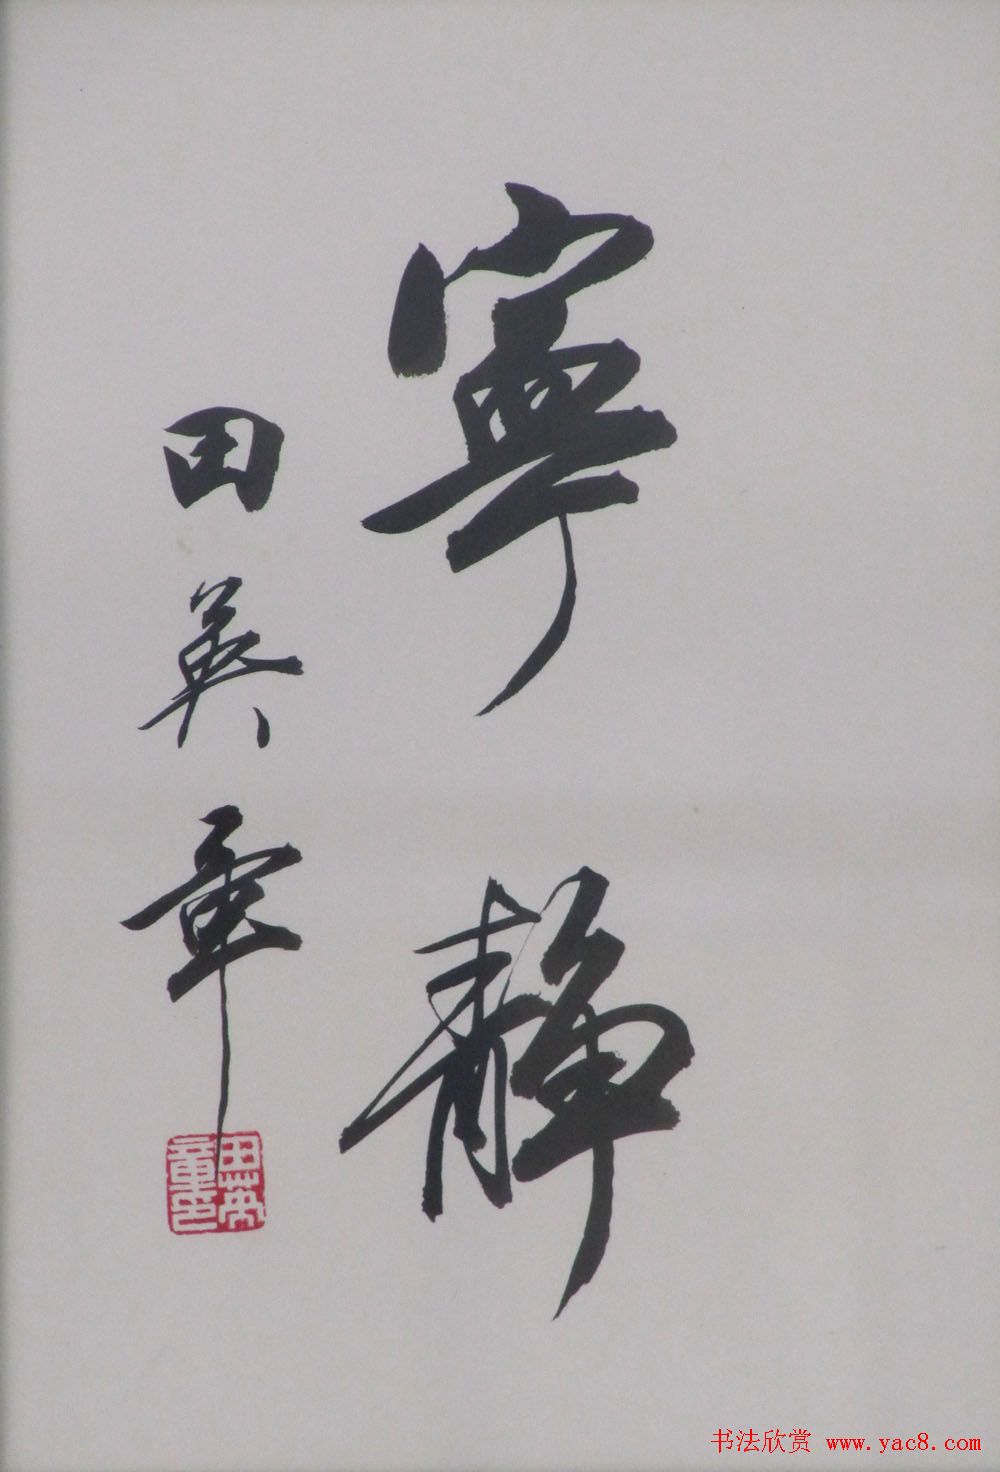 寧靜
田英章
田英章印
书法欣赏 www.yac8.com